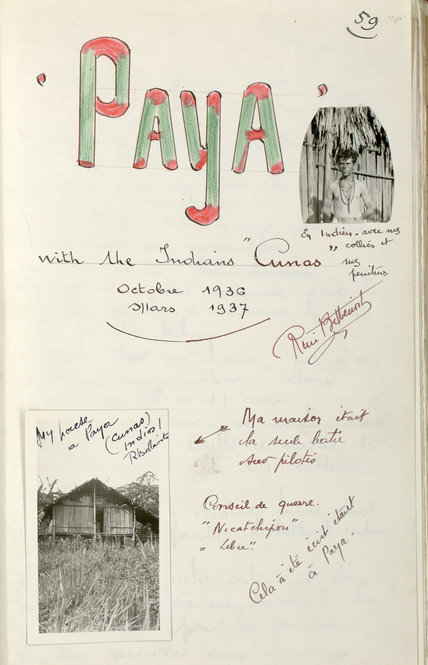 59
'PAYA'
En Indien - avec mes
" colliés et
mes
peintures
with the Indians "Cunas"
Octobre 1936
Mars 1937
René Belbenoit
My house
a Paya
(Cunas)
Indios!
RBelbenoit
Ma maison était
la seule batie
sur pilotis
Conseil de guerre.
"Necatchipou"
= Libre".
Cela à été écrit étant
à Paya -